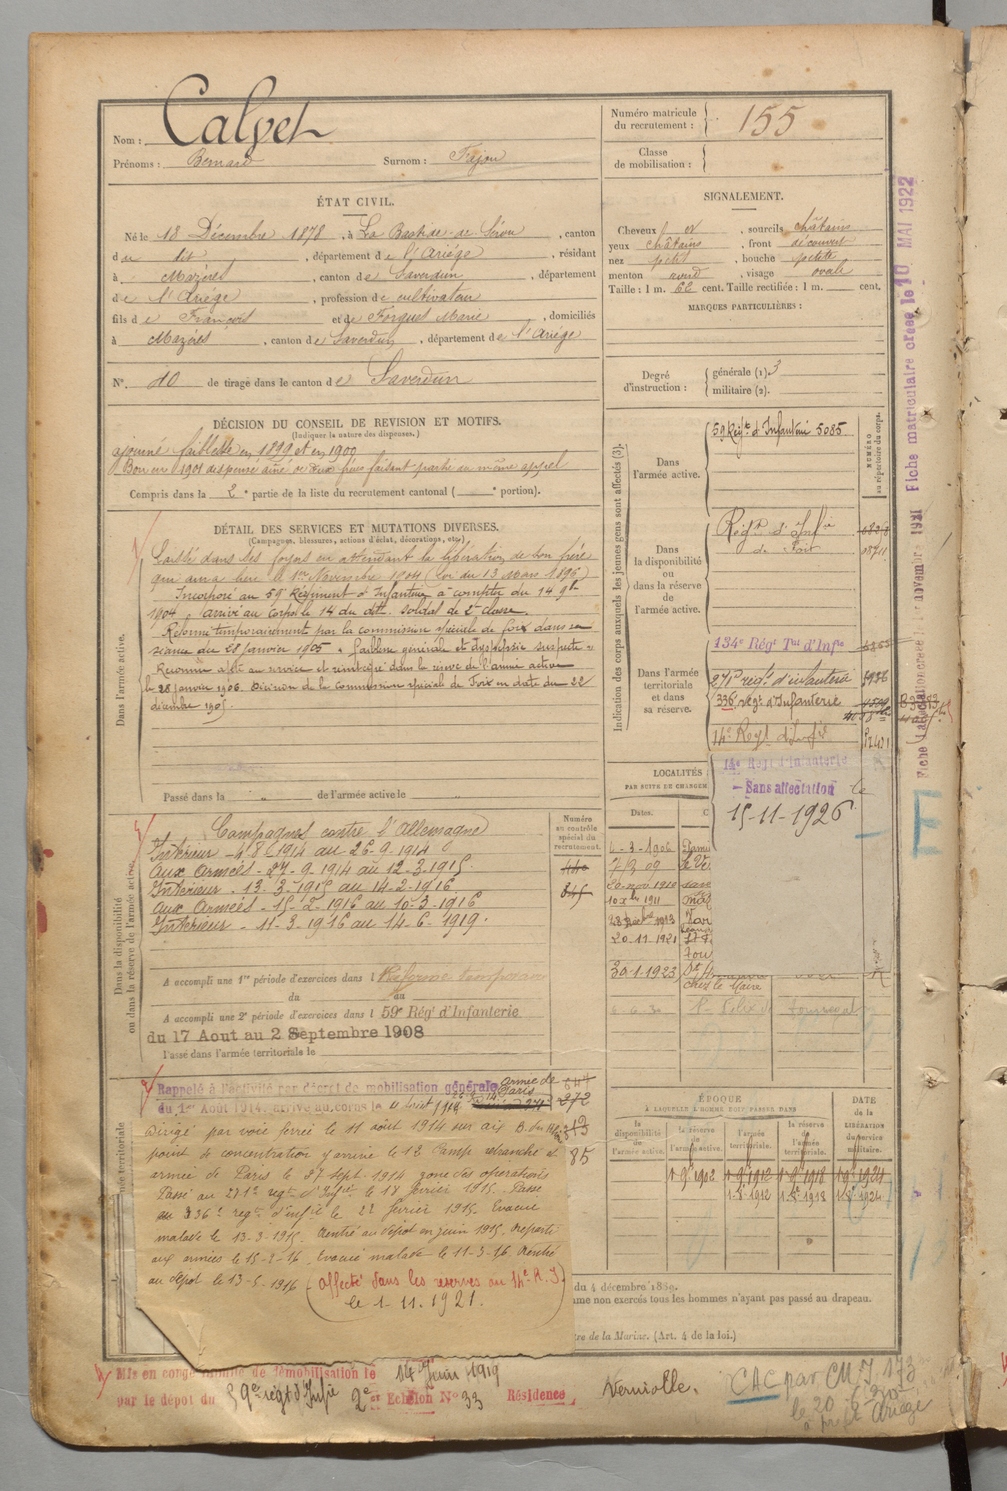 Nom : Calvet
Prénoms : Bernard Surnom : Fajou
Numéro matricule du recrutement : 155
Classe de mobilisation :
ÉTAT CIVIL.
Né le 18 Décembre 1878, à La Bastide-de-Sérou, canton
du dit, département de l'Ariège, résidant
à Mazères, canton de Saverdun, département
de l'Ariège, profession de cultivateur
fils de François et de Forgues Marie, domiciliés
à Mazères, canton de Saverdun, département de l'Ariège
N° 40 de tirage dans le canton de Saverdun
SIGNALEMENT.
Cheveux et, sourcils châtains
yeux châtains, front découvert
nez petit, bouche petite
menton rond, visage ovale
Taille : 1 m. 66 cent. Taille rectifiée : 1 m. cent.
MARQUES PARTICULIÈRES :
Degré d'instruction :
générale (1) 3
militaire (2).
DÉCISION DU CONSEIL DE REVISION ET MOTIFS.
(Indiquer la nature des dispenses.)
ajourné faiblesse en 1899 et en 1900
Bon en 1901 dispensé aîné de deux frères faisant partie du même appel
Compris dans la 2e partie de la liste du recrutement cantonal ( e portion).
DÉTAIL DES SERVICES ET MUTATIONS DIVERSES.
(Campagnes, blessures, actions d'éclat, décorations, etc.)
Dans l'armée active.
Laissé dans ses foyers en attendant la libération de son frère
qui aura lieu le 1er Novembre 1904 (Loi du 13 mars 1896)
Incorporé au 59e Régiment d'Infanterie à compter du 14 9bre
1904, arrivé au Corps le 14 du dit. Soldat de 2e classe.
Réformé temporairement par la commission spéciale de Foix dans sa
séance du 28 janvier 1905 « faiblesse générale et dyspepsie suspecte »
Reconnu apte au service et réintégré dans la réserve de l'armée active
le 28 janvier 1906. Décision de la commission spéciale de Foix en date du 22
décembre 1905.
Passé dans la de l'armée active le
Indication des corps auxquels les jeunes gens sont affectés (3).
NUMÉRO au répertoire du corps.
Dans l'armée active.
59 Régt d'Infanterie 5085
Dans la disponibilité ou dans la réserve de l'armée active.
Régt d'Infie de Foix
Dans l'armée territoriale et dans sa réserve.
134e Régt Tal d'Infie
271e régt d'infanterie
336e régt d'Infanterie
14e Regt d'Infie
14e Regt d'Infanterie
Sans affectation le
15-11-1926
LOCALITÉS
PAR SUITE DE CHANGEM
Dates.
7/3 09
20 nov 1910
10 Xbre 1911
20-11-1921
30-1-1923
chez le Maire
Dans la disponibilité ou dans la réserve de l'armée active.
Numéro au contrôle spécial du recrutement.
Campagnes contre l'Allemagne
Intérieur - 4-8-1914 au 26-9-1914
Aux Armées - 27-9-1914 au 12-3-1915.
Intérieur - 13-3-1915 au 14-2-1916
Aux Armées - 15-2-1916 au 10-3-1916
Intérieur - 11-3-1916 au 14-6-1919.
A accompli une 1re période d'exercices dans l Réforme temporaire
du au
A accompli une 2e période d'exercices dans l 59e Régt d'Infanterie
du 17 Aout au 2 Septembre 1908
Passé dans l'armée territoriale le
Rappelé à l'activité par décret de mobilisation générale Armée de Paris
du 1er Août 1914, arrivé au corps le
Dirigé par voie ferrée le 11 août 1914 sur
point de concentration y arrive le 13 Camp retranché et
armée de Paris le 27 sept. 1914 zone des opérations
Passé au 271e régt d'Infie le 18 février 1915. Passé
au 336e régt d'infie le 22 février 1915. Evacué
malade le 13-3-1915. Rentré au dépôt en juin 1915. Reparti
aux armées le 15-2-16. Evacué malade le 11-3-16. Rentré
au dépôt le 13-5-1916 (affecté dans les réserves au 14e R.I)
le 1-11-1921.
85
ÉPOQUE
À LAQUELLE L'HOMME DOIT PASSER DANS
la disponibilité de l'armée active.
la réserve de l'armée active.
l'armée territoriale.
la réserve de l'armée territoriale.
DATE de la LIBÉRATION du service militaire.
1 9bre 1902 1 9bre 1912 1 9bre 1918 1 9bre 1924
1-8-1912 1-8-1918 1-8-1924
du 4 décembre 1889.
mme non exercés tous les hommes n'ayant pas passé au drapeau.
tre de la Marine. (Art. 4 de la loi.)
Mis en congé illimité de démobilisation le 14 Juin 1919
par le dépôt du 59e régt d'Infie 2e Echelon N° 33 Résidence Verniolle.
CAC par CM J 173
le 20
Ariège
Fiche matriculaire créée le 10 MAI 1922